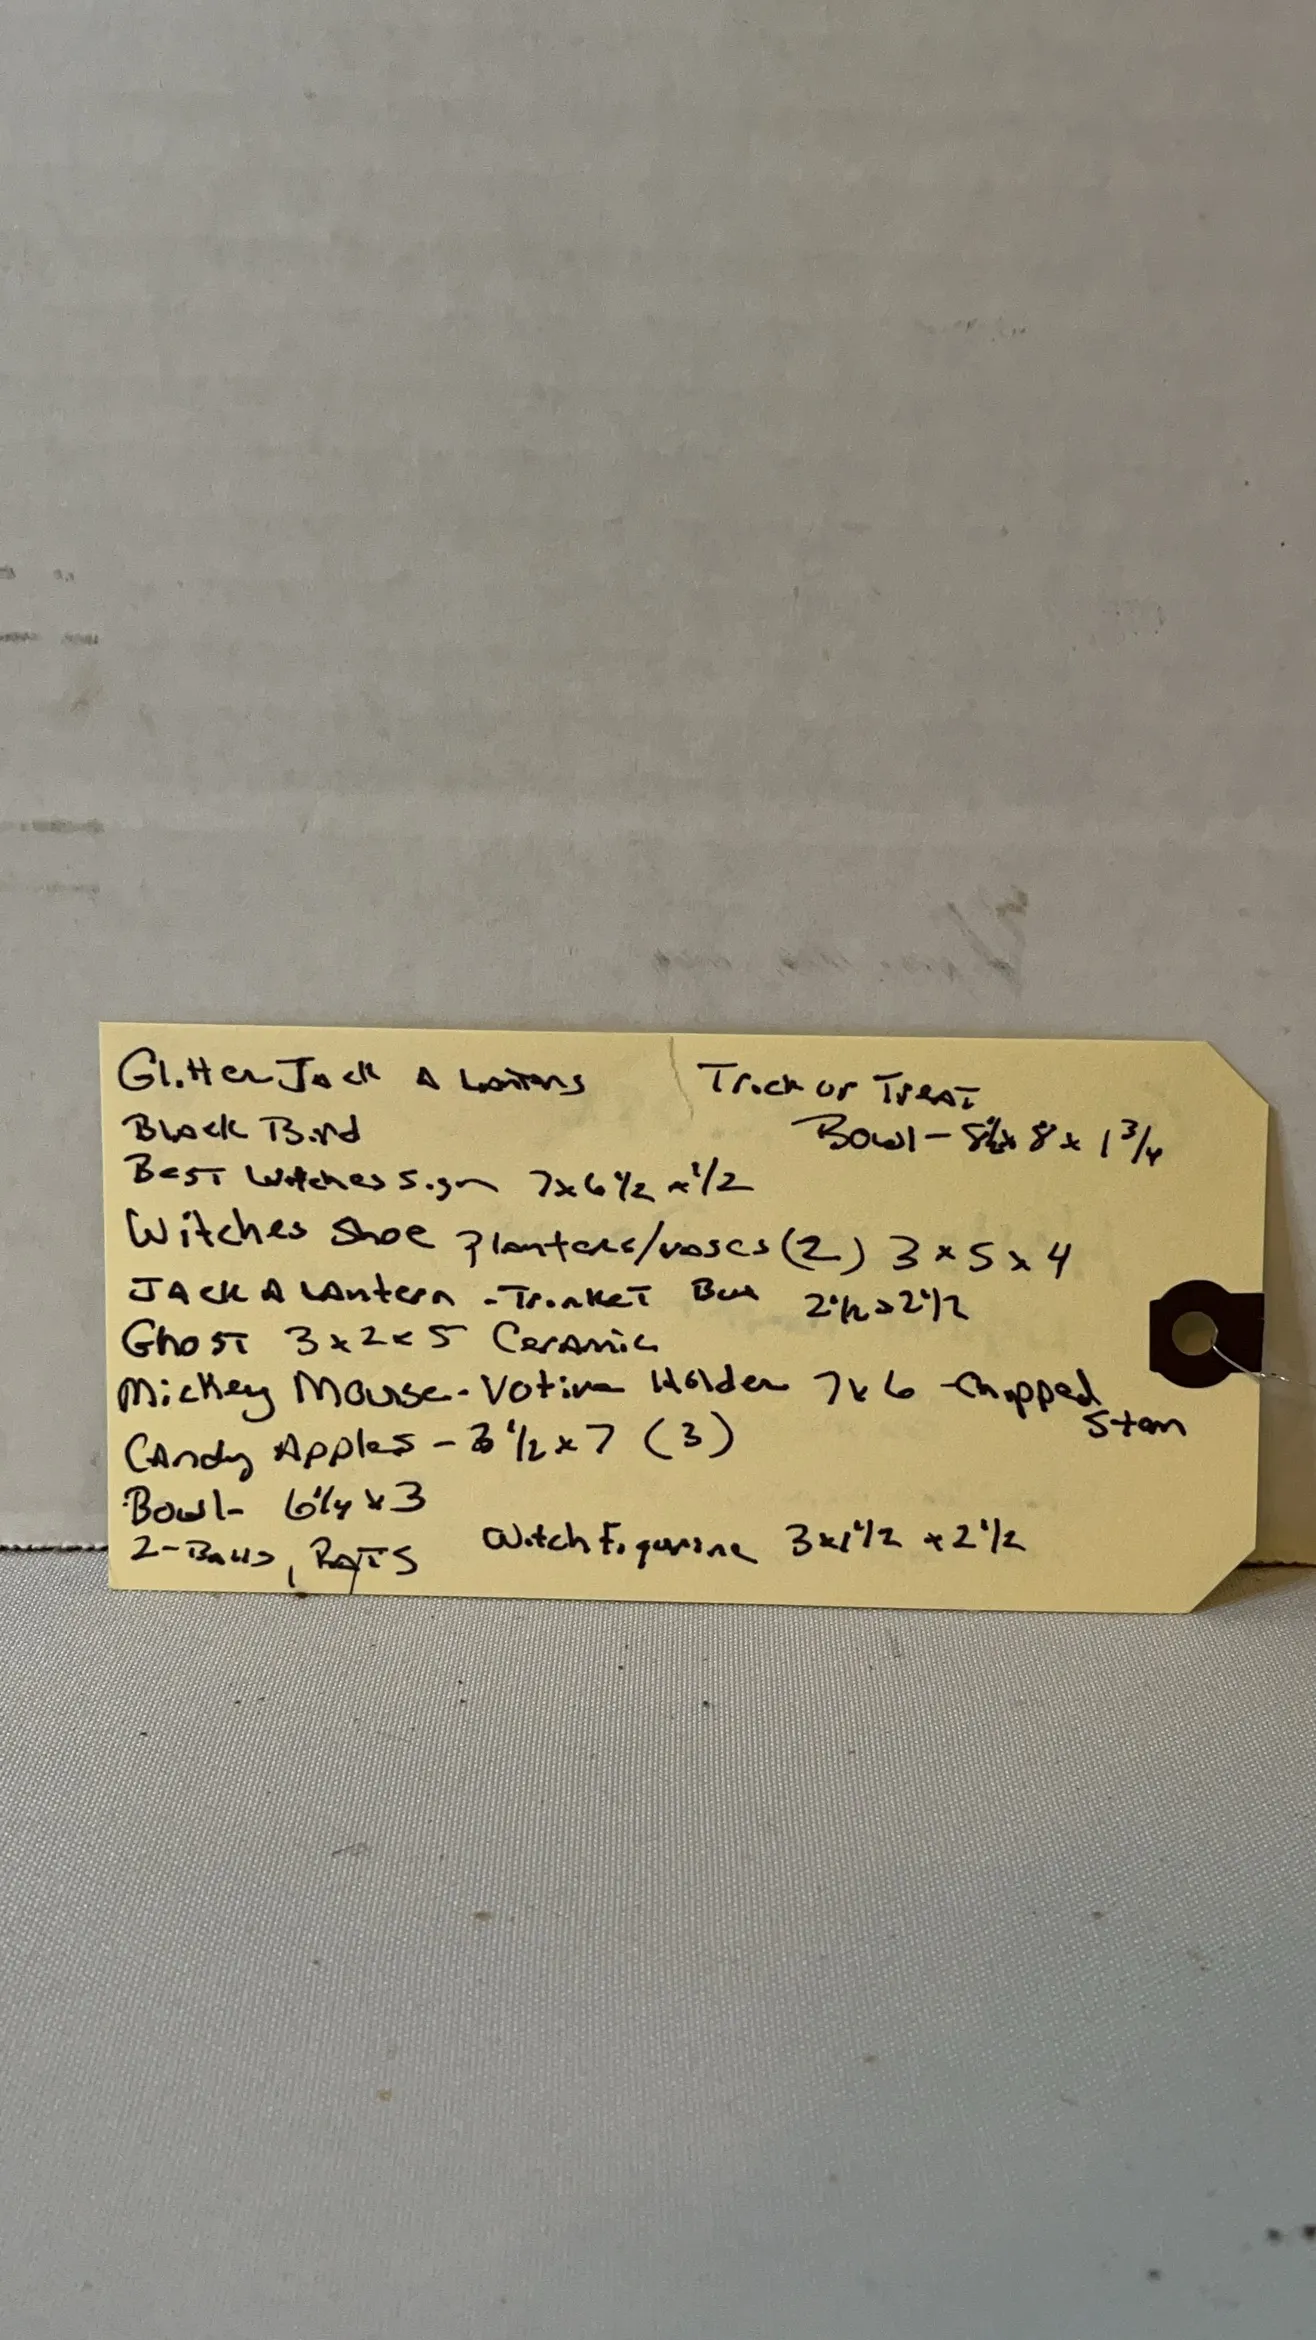 Glitter Jack A Lanterns
Black Bird
Best Witches Sign 7x6 1/2 x 1/2
Witches Shoe Planters/vases (2) 3 x 5 x 4
JAck A LAntern - Trinket Box 2 1/2 x 2 1/2
Ghost 3 x 2 x 5 Ceramic
Mickey Mouse - Votive Holder 7x6 - Chipped
Stem
CAndy Apples - 3 1/2 x 7 (3)
Bowl - 6 1/4 x 3
2 - , RATS
Witch Figurine 3 x 1 1/2 x 2 1/2
Trick or Treat
Bowl - 8 x 1 3/4